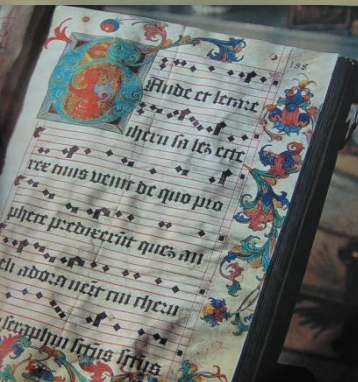 188
GAude et letare
iheru sa lez ecce
rex tuus venit de quo pro
phete predixerūt quez an
eli adora cheru
seraphin sctus sctus